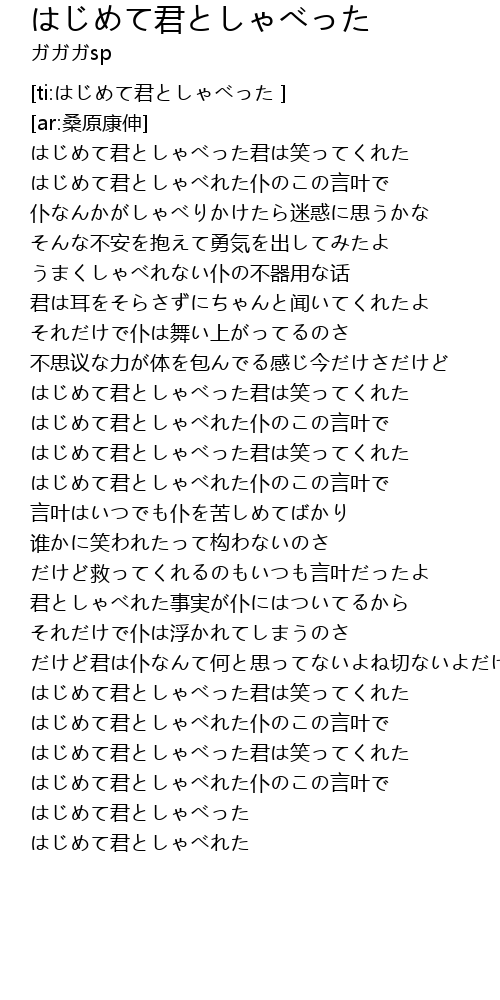 はじめて君としゃべった
ガガガsp
[ti:はじめて君としゃべった ]
[ar:桑原康伸]
はじめて君としゃべった君は笑ってくれた
はじめて君としゃべれた仆のこの言叶で
仆なんかがしゃべりかけたら迷惑に思うかな
そんな不安を抱えて勇気を出してみたよ
うまくしゃべれない仆の不器用な话
君は耳をそらさずにちゃんと闻いてくれたよ
それだけで仆は舞い上がってるのさ
不思议な力が体を包んでる感じ今だけさだけど
はじめて君としゃべった君は笑ってくれた
はじめて君としゃべれた仆のこの言叶で
はじめて君としゃべった君は笑ってくれた
はじめて君としゃべれた仆のこの言叶で
言叶はいつでも仆を苦しめてばかり
谁かに笑われたって构わないのさ
だけど救ってくれるのもいつも言叶だったよ
君としゃべれた事実が仆にはついてるから
それだけで仆は浮かれてしまうのさ
だけど君は仆なんて何と思ってないよね切ないよだけ
はじめて君としゃべった君は笑ってくれた
はじめて君としゃべれた仆のこの言叶で
はじめて君としゃべった君は笑ってくれた
はじめて君としゃべれた仆のこの言叶で
はじめて君としゃべった
はじめて君としゃべれた